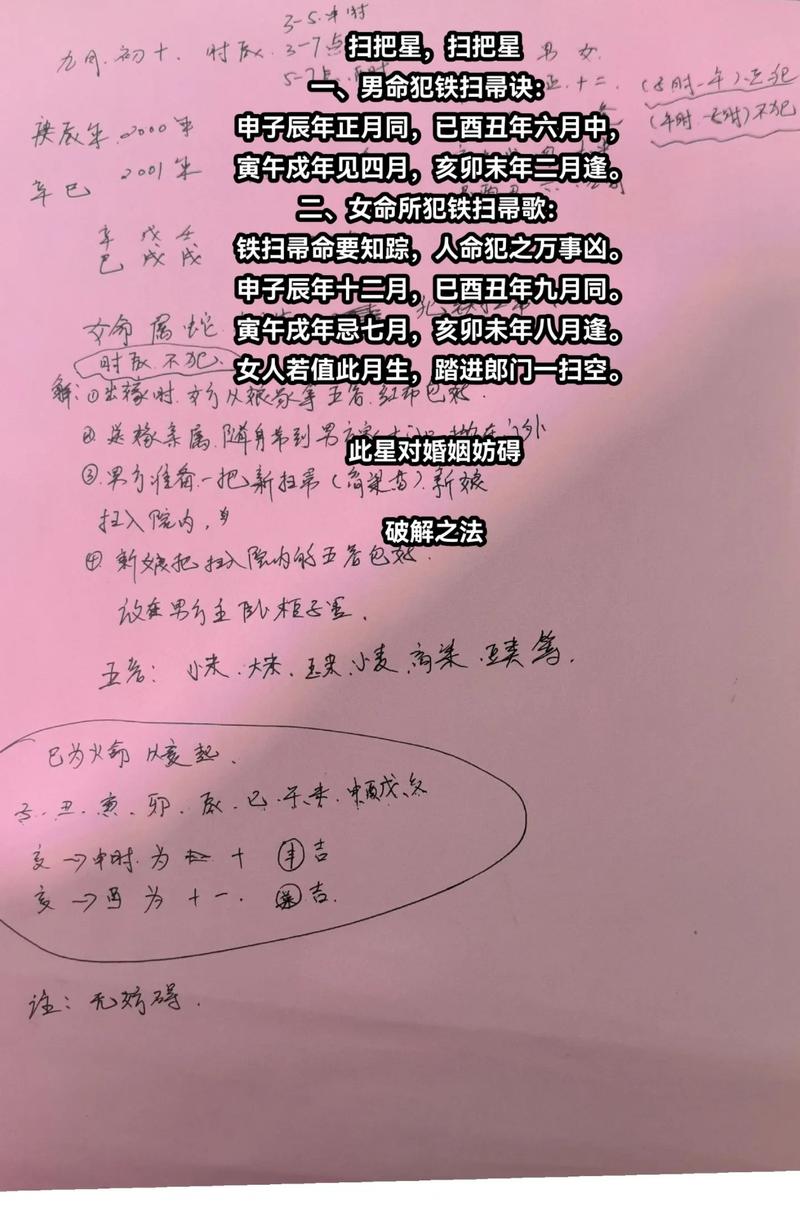 3-5 申时
九月.初十. 时辰. 3-7点
5-7点 酉时
扫把星，扫把星
男 女
一、男命犯铁扫帚诀：
正. 十二.
庚辰年. 2000年
申子辰年正月同，巳酉丑年六月中，
辛巳 2001年
寅午戌年见四月，亥卯未年二月逢。
二、女命所犯铁扫帚歌：
辛 戊 壬
巳 戌 戌
铁扫帚命要知踪，人命犯之万事凶。
申子辰年十二月，巳酉丑年九月同。
女命 属蛇
寅午戌年忌七月，亥卯未年八月逢。
时辰 不犯.
女人若值此月生，踏进郎门一扫空。
解：①出嫁时.女方从娘家拿五谷.红布包好.
②送嫁亲属.随身带到男方家
此星对婚姻妨碍
③男方准备一把新扫帚（高粱苗）.新娘
扫入院内，
破解之法
④新娘把扫入院内的五谷包好.
放在男方主卧柜子里.
五谷：小米.大米.玉米.小麦.高粱.豆类等.
巳为火命 从亥起.
子.丑.寅.卯.辰.巳.午.未.申酉戌.亥
亥→申时.为 十 吉
亥→酉 为 十一. 吉.
注：无妨碍.